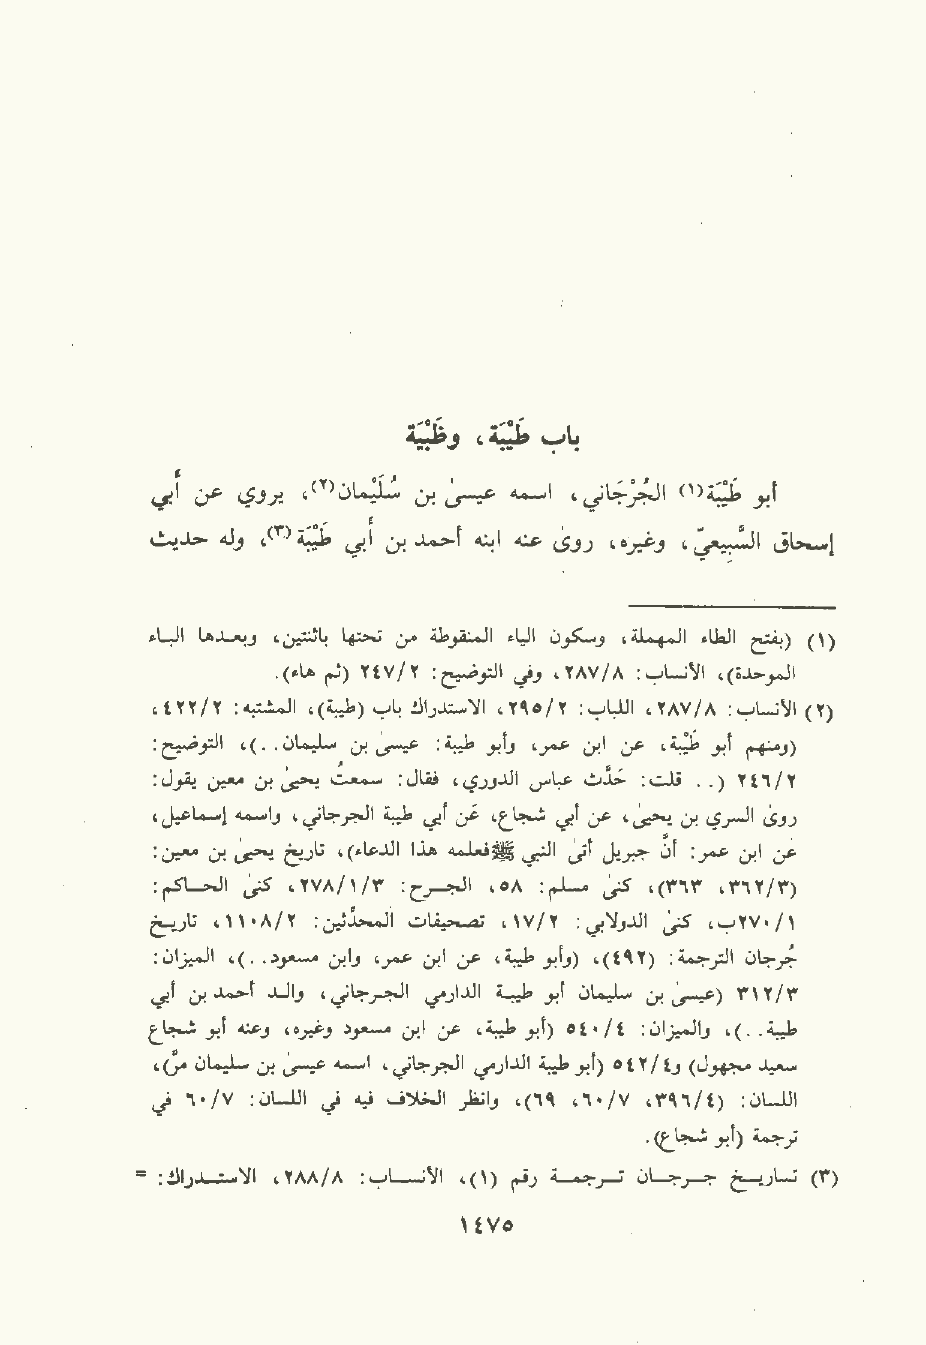 باب طَيْبَة، وظَبْيَة
أبو طَيْبَة(١) الجُرْجَاني، اسمه عيسىٰ بن سُلَيْمان(٢)، يروي عن أبي
إسحاق السَّبِيعيّ، وغيره، روىٰ عنه ابنه أحمد بن أبي طَيْبَة(٣)، وله حديث
(١) (بفتح الطاء المهملة، وسكون الياء المنقوطة من تحتها باثنتين، وبعدها الباء
الموحدة)، الأنساب: ٢٨٧/٨، وفي التوضيح: ٢٤٧/٢ (ثم هاء).
(٢) الأنساب: ٢٨٧/٨، اللباب: ٢٩٥/٢، الاستدراك باب (طيبة)، المشتبه: ٤٢٢/٢،
(ومنهم أبو طَيْبَة، عن ابن عمر، وأبو طيبة: عيسىٰ بن سليمان..)، التوضيح:
٢٤٦/٢ (.. قلت: حَدَّث عباس الدوري، فقال: سمعتُ يحيىٰ بن معين يقول:
روىٰ السري بن يحيىٰ، عن أبي شجاع، عَن أبي طيبة الجرجاني، واسمه إسماعيل،
عن ابن عمر: أنَّ جبريل أتىٰ النبي ﷺ فعلمه هذا الدعاء)، تاريخ يحيىٰ بن معين:
(٣٦٢/٣، ٣٦٣)، كنىٰ مسلم: ٥٨، الجرح: ٢٧٨/١/٣، كنىٰ الحاكم:
١/ ٢٧٠ب، كنىٰ الدولابي: ١٧/٢، تصحيفات المحدّثين: ١١٠٨/٢، تاريخ
جُرجان الترجمة: (٤٩٢)، (وأبو طيبة، عن ابن عمر، وابن مسعود..)، الميزان:
٣١٢/٣ (عيسىٰ بن سليمان أبو طيبة الدارمي الجرجاني، والد أحمد بن أبي
طيبة..)، والميزان: ٥٤٠/٤ (أبو طيبة، عن ابن مسعود وغيره، وعنه أبو شجاع
سعيد مجهول) و٥٤٢/٤ (أبو طيبة الدارمي الجرجاني، اسمه عيسىٰ بن سليمان مرَّ)،
اللسان: (٣٩٦/٤، ٦٠/٧، ٦٩)، وانظر الخلاف فيه في اللسان: ٦٠/٧ في
ترجمة (أبو شجاع).
(٣) تاريخ جرجان ترجمة رقم (١)، الأنساب: ٢٨٨/٨، الاستدراك: =
١٤٧٥